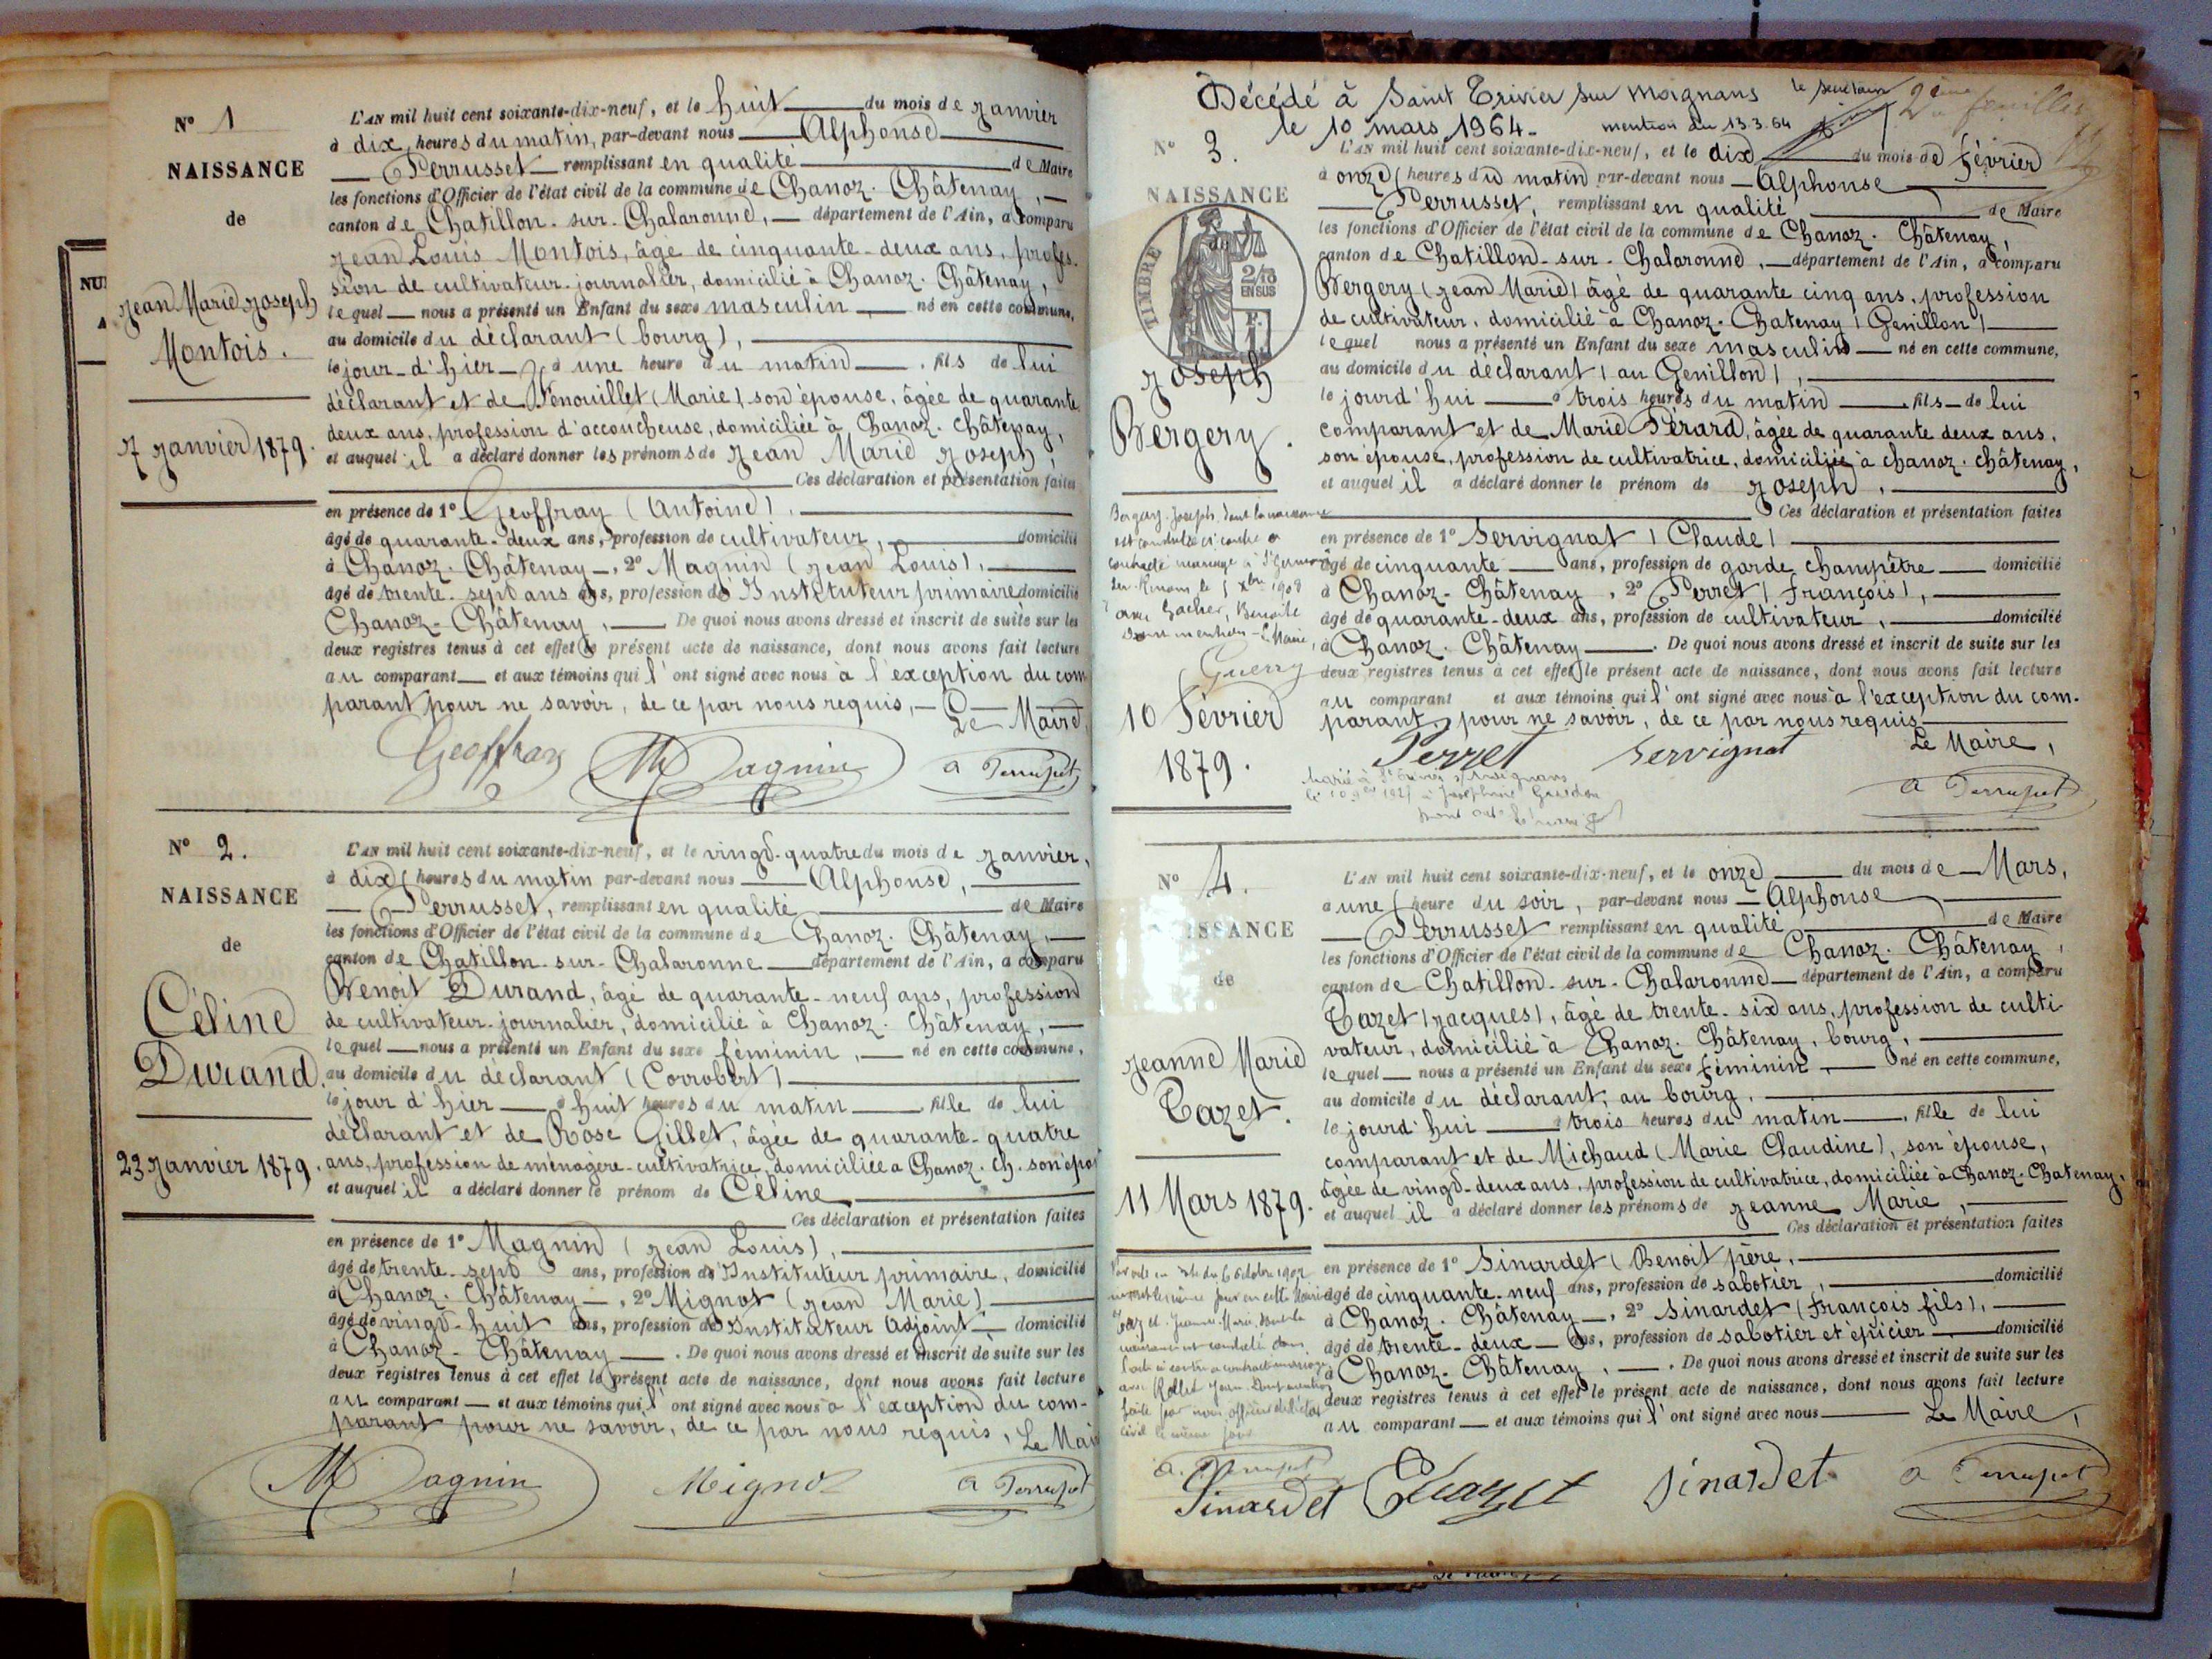 N° 1
NAISSANCE
de
Jean Marie Joseph
Montois.
7 Janvier 1879.
L'AN mil huit cent soixante-dix-neuf, et le huit du mois de Janvier
à dix heures du matin, par-devant nous Alphonse
Perrusset remplissant en qualité de Maire
les fonctions d'Officier de l'état civil de la commune de Chanoz-Châtenay,
canton de Chatillon-sur-Chalaronne, département de l'Ain, a comparu
Jean Louis Montois, âgé de cinquante-deux ans, profes-
sion de cultivateur-journalier, domicilié à Chanoz-Châtenay,
lequel nous a présenté un Enfant du sexe masculin, né en cette commune,
au domicile du déclarant (bourg),
le jour d'hier, à une heure du matin, fils de lui
déclarant et de Fenouillet (Marie) son épouse, âgée de quarante
deux ans, profession d'accoucheuse, domiciliée à Chanoz-Châtenay,
et auquel il a déclaré donner les prénoms de Jean Marie Joseph,
Ces déclaration et présentation faites
en présence de 1° Geoffray (Antoine),
âgé de quarante-deux ans, profession de cultivateur, domicilié
à Chanoz-Châtenay, 2° Magnin (Jean Louis),
âgé de trente-sept ans, profession d'Instituteur primaire domicilié
Chanoz-Châtenay, De quoi nous avons dressé et inscrit de suite sur les
deux registres tenus à cet effet le présent acte de naissance, dont nous avons fait lecture
au comparant et aux témoins qui l'ont signé avec nous à l'exception du com
parant pour ne savoir, de ce par nous requis,
Le Maire,
Geoffray Magnin A Perrusset
N° 2.
NAISSANCE
de
Céline
Durand.
23 Janvier 1879.
L'AN mil huit cent soixante-dix-neuf, et le vingt-quatre du mois de Janvier,
à dix heures du matin par-devant nous Alphonse,
Perrusset, remplissant en qualité de Maire
les fonctions d'Officier de l'état civil de la commune de Chanoz-Châtenay,
canton de Chatillon-sur-Chalaronne département de l'Ain, a comparu
Benoit Durand, âgé de quarante-neuf ans, profession
de cultivateur-journalier, domicilié à Chanoz-Châtenay,
lequel nous a présenté un Enfant du sexe féminin, né en cette commune,
au domicile du déclarant (Corrobert)
le jour d'hier à huit heures du matin, fille de lui
déclarant et de Rose Gillet, âgée de quarante-quatre
ans, profession de ménagère-cultivatrice, domiciliée à Chanoz-Ch. son épo
et auquel il a déclaré donner le prénom de Céline
Ces déclaration et présentation faites
en présence de 1° Magnin (Jean Louis),
âgé de trente-sept ans, profession d'Instituteur primaire, domicilié
à Chanoz-Châtenay, 2° Mignot (Jean Marie)
âgé de vingt-huit ans, profession d'Instituteur Adjoint, domicilié
à Chanoz-Châtenay. De quoi nous avons dressé et inscrit de suite sur les
deux registres tenus à cet effet le présent acte de naissance, dont nous avons fait lecture
au comparant et aux témoins qui l'ont signé avec nous à l'exception du com-
parant pour ne savoir, de ce par nous requis, Le Mai
Magnin Mignot A Perrusset
Décédé à Saint Trivier sur Moignans
le 10 mars 1964. mention du 13.3.64
2ème feuillet
N° 3.
NAISSANCE
de
TIMBRE
2/10
EN SUS
Joseph
Bergery.
Bergery Joseph, dont la naissance
est constatée ci-contre a
contracté mariage à St Germain
sur Renom le 5 Xbre 1908
avec Gacher, Benoîte
Dont mention Le Maire,
Guerry
10 Février
1879.
L'AN mil huit cent soixante-dix-neuf, et le dix du mois de Février
à onze heures du matin par-devant nous Alphonse
Perrusset, remplissant en qualité de Maire
les fonctions d'Officier de l'état civil de la commune de Chanoz-Châtenay,
canton de Chatillon-sur-Chalaronne, département de l'Ain, a comparu
Bergery (Jean Marie) âgé de quarante cinq ans, profession
de cultivateur, domicilié à Chanoz-Chatenay (Genillon)
lequel nous a présenté un Enfant du sexe masculin né en cette commune,
au domicile du déclarant (au Genillon),
le jourd'hui à trois heures du matin, fils de lui
comparant et de Marie Pérard, âgée de quarante deux ans,
son épouse, profession de cultivatrice, domiciliée à Chanoz-Châtenay,
et auquel il a déclaré donner le prénom de Joseph,
Ces déclaration et présentation faites
en présence de 1° Servignat (Claude)
âgé de cinquante ans, profession de garde champêtre domicilié
à Chanoz-Châtenay, 2° Perret (François),
âgé de quarante-deux ans, profession de cultivateur, domicilié
à Chanoz-Châtenay. De quoi nous avons dressé et inscrit de suite sur les
deux registres tenus à cet effet le présent acte de naissance, dont nous avons fait lecture
au comparant et aux témoins qui l'ont signé avec nous à l'exception du com-
parant, pour ne savoir, de ce par nous requis
Le Maire,
Perret Servignat A Perrusset
Marié à St Trivier s/ Moignans
N° 4.
ISSANCE
de
Jeanne Marie
Cazet.
11 Mars 1879.
L'AN mil huit cent soixante-dix-neuf, et le onze du mois de Mars,
à une heure du soir, par-devant nous Alphonse
Perrusset remplissant en qualité de Maire
les fonctions d'Officier de l'état civil de la commune de Chanoz-Châtenay,
canton de Chatillon-sur-Chalaronne département de l'Ain, a comparu
Cazet (Jacques), âgé de trente-six ans, profession de culti
vateur, domicilié à Chanoz-Châtenay, bourg,
lequel nous a présenté un Enfant du sexe féminin, né en cette commune,
au domicile du déclarant, au bourg,
le jourd'hui à trois heures du matin, fille de lui
comparant et de Michaud (Marie Claudine), son épouse,
âgée de vingt-deux ans, profession de cultivatrice, domiciliée à Chanoz-Chatenay,
et auquel il a déclaré donner les prénoms de Jeanne Marie,
Ces déclaration et présentation faites
en présence de 1° Sinardet (Benoit père,
âgé de cinquante-neuf ans, profession de sabotier, domicilié
à Chanoz-Châtenay, 2° Sinardet (François fils),
âgé de trente-deux ans, profession de sabotier et épicier domicilié
à Chanoz-Châtenay,. De quoi nous avons dressé et inscrit de suite sur les
deux registres tenus à cet effet le présent acte de naissance, dont nous avons fait lecture
au comparant et aux témoins qui l'ont signé avec nous Le Maire,
A. Perrusset
Sinardet Cazet Sinardet A Perrusset